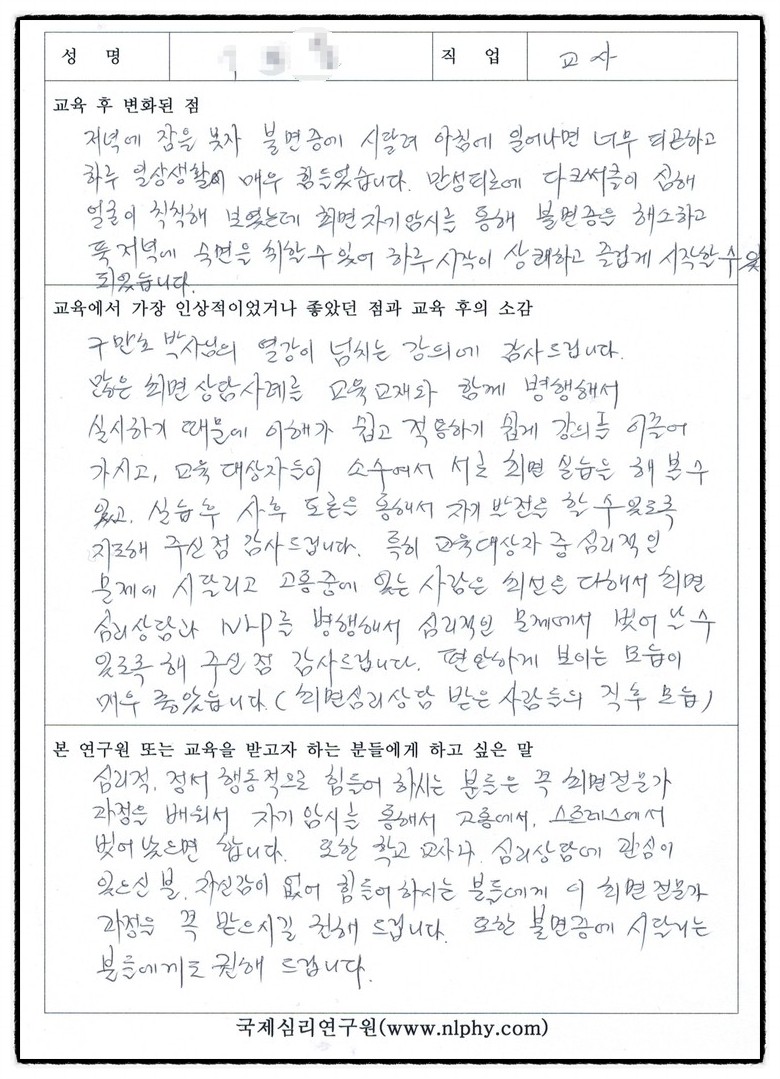 성 명 직 업 교사
교육 후 변화된 점
저녁에 잠을 못자 불면증에 시달려 아침에 일어나면 너무 피곤하고
하루 일상생활에 매우 힘들었습니다. 만성피로에 다크써클이 심해
얼굴이 칙칙해 보였는데 최면자기암시를 통해 불면증을 해소하고
푹 저녁에 숙면을 취할 수 있어 하루 시작이 상쾌하고 즐겁게 시작할 수 있
되었습니다.
교육에서 가장 인상적이었거나 좋았던 점과 교육 후의 소감
박사님의 열강이 넘치는 강의에 감사드립니다.
많은 최면상담사례를 교육교재와 함께 병행해서
실시하기 때문에 이해가 쉽고 적용하기 쉽게 강의를 이끌어
가시고, 교육 대상자들이 소수여서 서로 최면 실습을 해 볼 수
있고. 실습 후 사후 토론을 통해서 자기 발전을 할 수 있도록
지도해 주신 점 감사드립니다. 특히 교육대상자 중 심리적인
문제에 시달리고 고통중에 있는 사람은 최선을 다해서 최면
심리상담과 NLP를 병행해서 심리적인 문제에서 벗어 날 수
있도록 해 주신 점 감사드립니다. 편안하게 보이는 모습이
매우 좋았습니다. (최면심리상담 받은 사람들의 직후 모습)
본 연구원 또는 교육을 받고자 하는 분들에게 하고 싶은 말
심리적, 정서 행동적으로 힘들어 하시는 분들은 꼭 최면전문가
과정을 배워서 자기암시를 통해서 고통에서, 스트레스에서
벗어 났으면 합니다. 또한 학교 교사나, 심리상담에 관심이
있으신 분, 자신감이 없어 힘들어하시는 분들에게 이 최면전문가
과정을 꼭 받으시길 권해 드립니다. 또한 불면증에 시달리는
분들에게도 권해 드립니다.
국제심리연구원(www.nlphy.com)